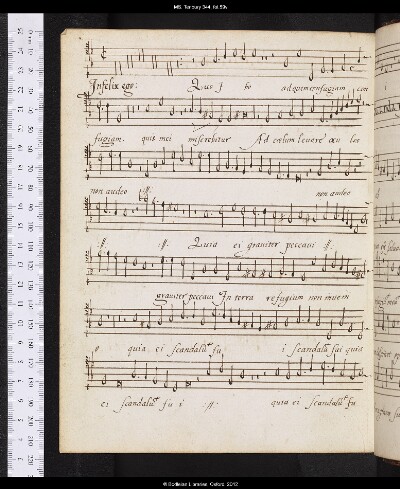 MS. Tenbury 344, fol.59v
Infelix ego: Quo I bo ad quem confugiam con
fugiam. quis mei miserebitur Ad celum levare
non audeo :ff: non audeo
:ff: :ff: Quia ei graviter peccavi :ff:
graviter peccavi In terra refugium non invem
quia ei scandalũ fu i scandalũ fui quia
ei scandalũ fu i :ff: quia ei scandalũ fu
© Bodleian Libraries, Oxford, 2012